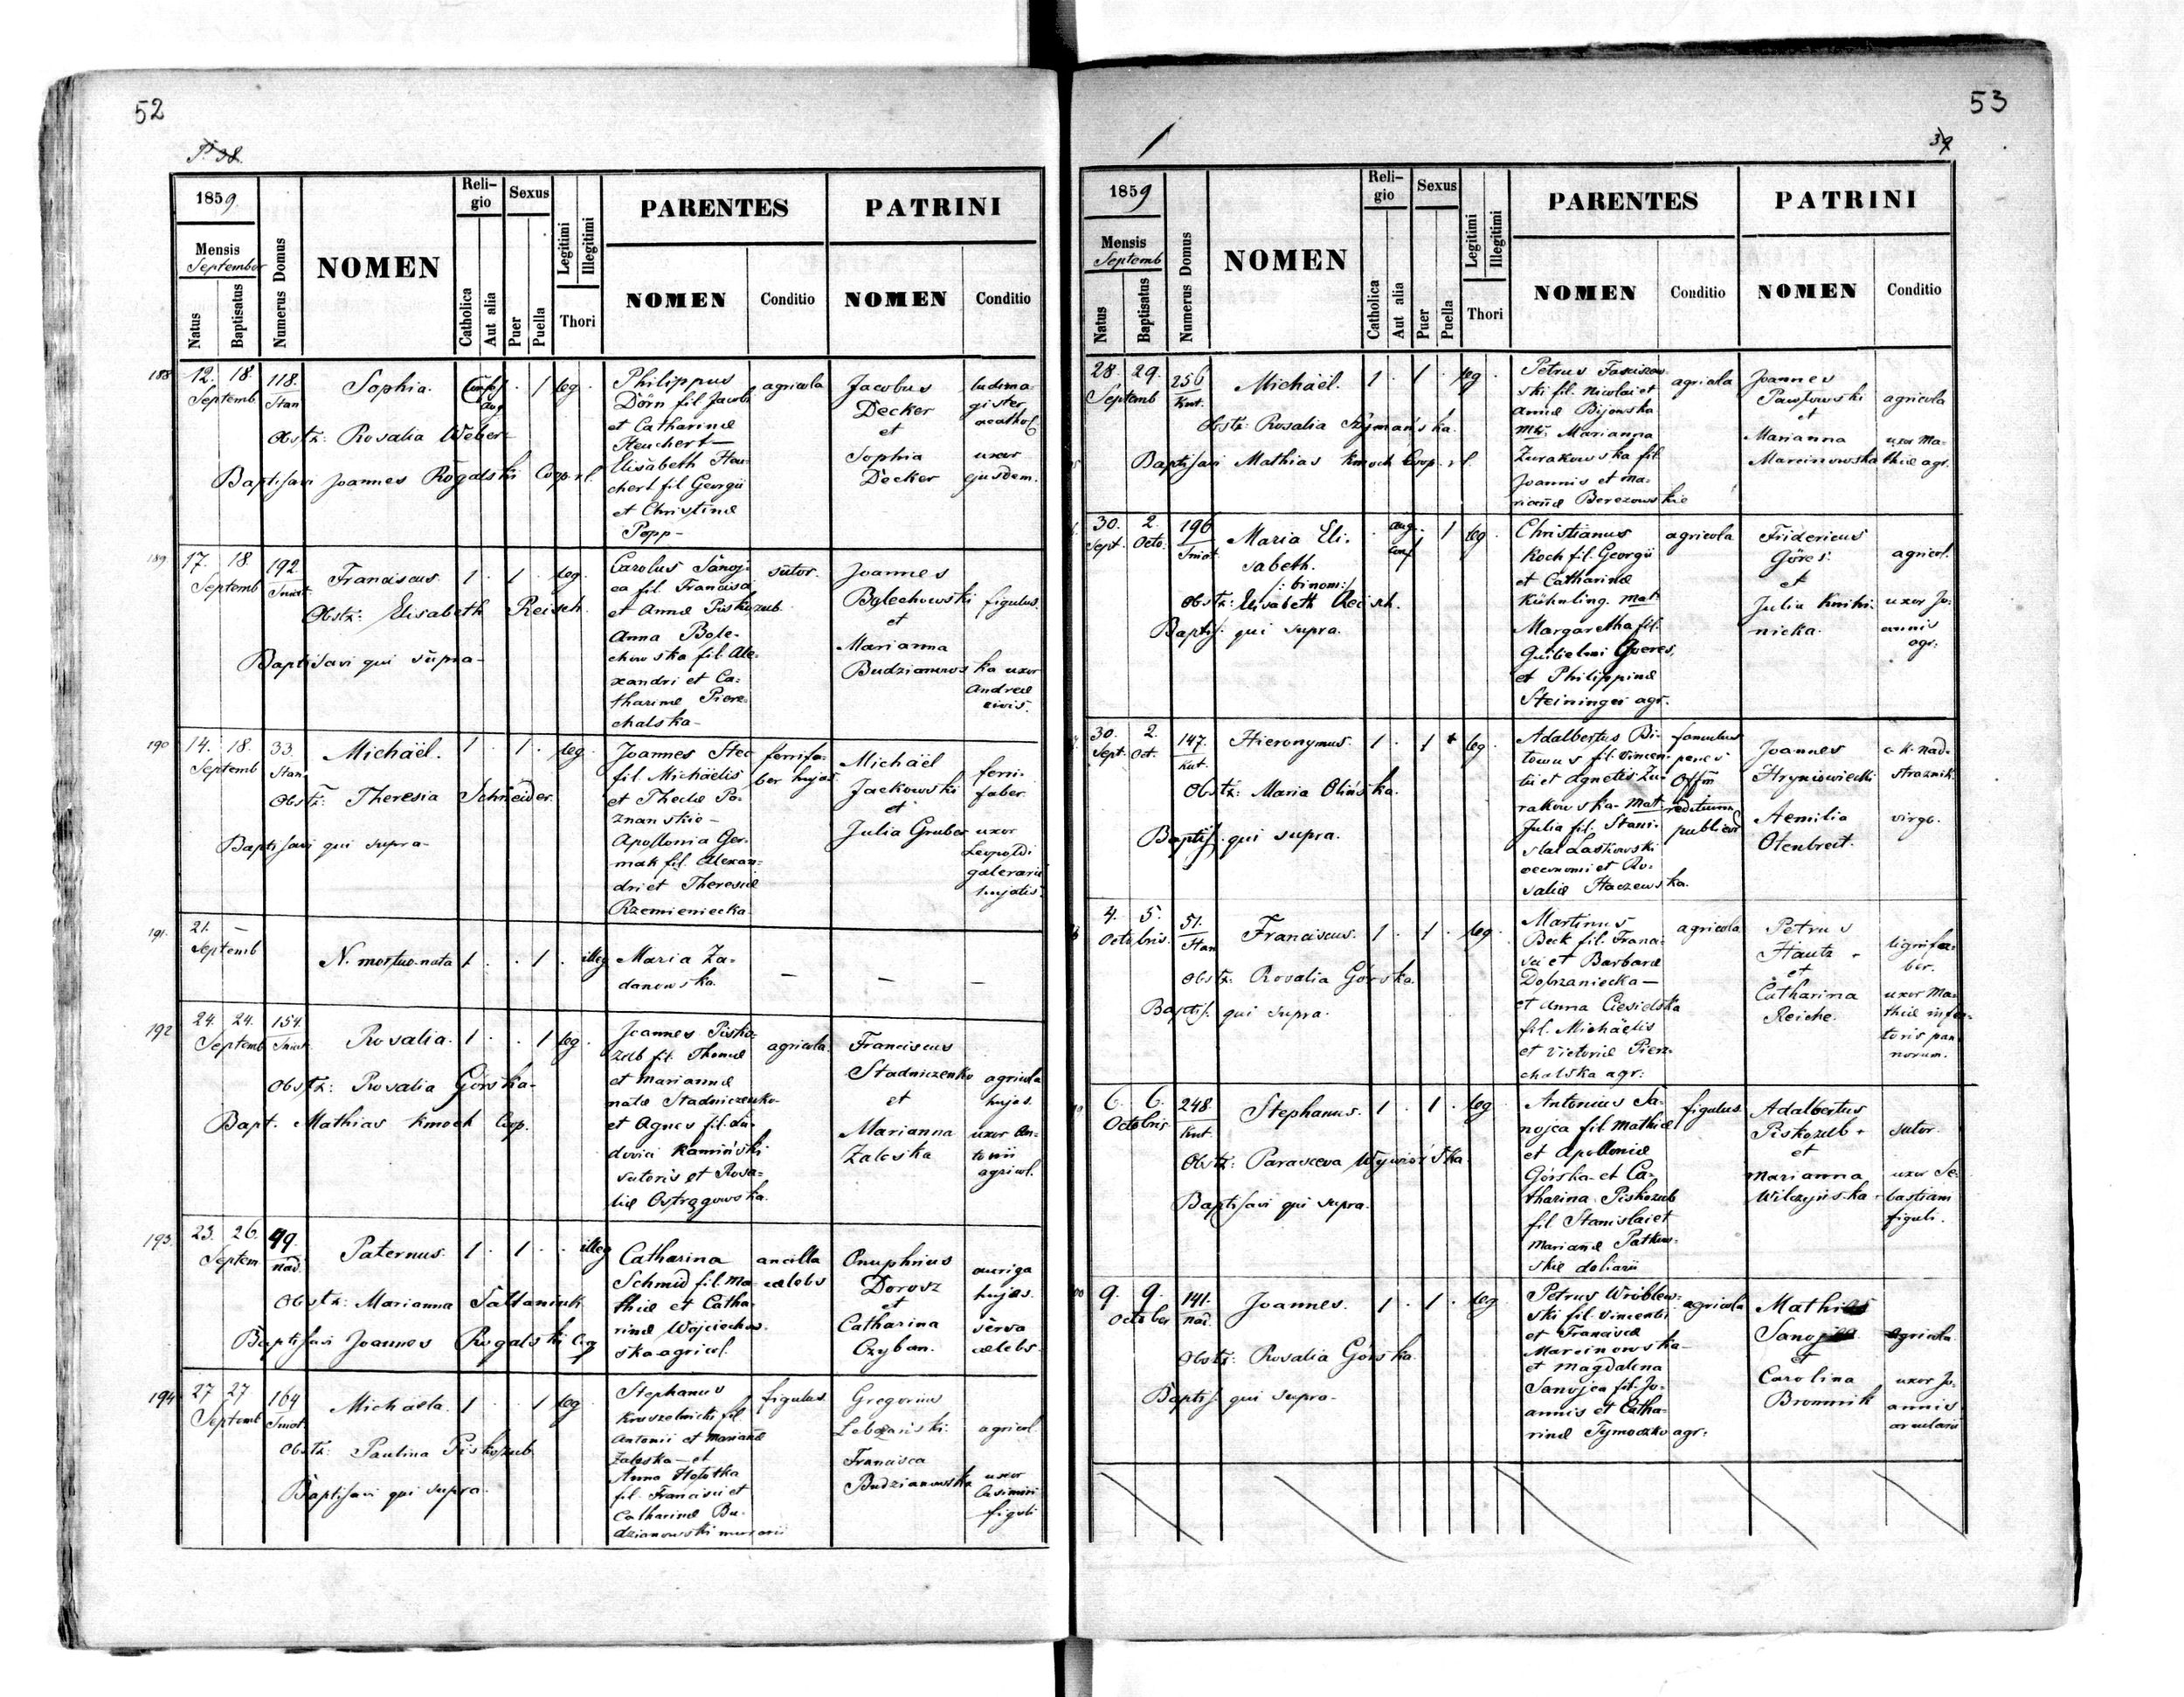 52
P. 38.
1859.
Mensis
September
Natus
Baptisatus
Numerus Domus
NOMEN
Reli-
gio
Catholica
Aut alia
Sexus
Puer
Puella
Legitimi
Illegitimi
Thori
PARENTES
NOMEN
Conditio
PATRINI
NOMEN
Conditio
188
12. 18.
Septemb
118.
Stan
Sophia.
Conf.
aug
1 leg.
Obstz: Rosalia Weber
Baptisavi Joannes Rogalski Coop. r.l.
Philippus
Dörn fil. Jacobi
et Catharinæ
Heuchert –
Elisabeth Heu-
chert fil Georgii
et Christinæ
Popp –
agricola
Jacobus
Decker
et
Sophia
Decker
ludima-
gister
acathol.
uxor
ejusdem.
189
17. 18
Septemb
192
Sniat.
Franciscus. 1 . 1 . leg.
Obstz: Elisabeth Reisch.
Baptisavi qui supra –
Carolus Sanoj-
ca fil. Francisci
et Annæ Piskozub.
Anna Bole-
chowska fil. Ale-
xandri et Ca-
tharinæ Pierz-
chalska –
sutor.
Joannes
Bolechowski
et
Marianna
Budzianowska uxor
figulus.
Andreæ
civis.
190
14. 18.
Septemb
33.
Stan.
Michaël. 1 . 1 . leg.
Obstz: Theresia Schneider.
Baptisavi qui supra –
Joannes Stec
fil. Michaëlis
et Theclæ Po-
znanskie –
Apollonia Ger-
mak fil. Alexan-
dri et Theresiæ
Rzemieniecka
ferrifa-
ber hujas.
Michaël
Jackowski
et
Julia Gruber
ferri-
faber
uxor
Leopoldi
galerarii
hujatis.
191.
21. –
Septemb
N. mortuo-nata 1 . . 1 . illeg
Maria Za-
danowska.
– – –
192
24. 24.
Septemb
154.
Sniat.
Rosalia. 1 . . 1 leg.
Obstz: Rosalia Górska –
Bapt. Mathias Kmoch Coop.
Joannes Pisko-
zub fil. Thomæ
et Mariannæ
natæ Stadniczenko
et Agnes fil. Lu-
dovici Kamiński
sutoris et Rosa-
liæ Ostrzgowska.
agricola.
Franciscus
Stadniczenko
et
Marianna
Zaleska
agricola
hujas.
uxor An-
tonii
agricol.
193.
23. 26.
Septem
49.
nad.
Paternus. 1 . 1 . . illeg
Obstz: Marianna Sattaniuk
Baptisavi Joannes Rogalski Coop
Catharina
Schmid fil. Ma-
thiæ et Catha-
rinæ Wojciechow-
ska agricol.
ancilla
cælebs
Onuphrius
Dorosz
et
Catharina
Czyban.
auriga
hujas.
serva
cælebs.
194
27 27
Septemb
164
Sniat.
Michaëla. 1 . . 1 leg
Obstz: Paulina Piskozub
Baptisavi qui supra.
Stephanus
Kruszelnicki fil
Antonii et Mariannæ
Zaleska – et
Anna Hołotka
fil. Francisci et
Catharinæ Bu-
dzianowski murarii
figulus.
Gregorius
Francisca
Budzianowska
agricol
uxor
Casimiri
figuli
53
39
1859
Mensis
Septemb
Natus
Baptisatus
Numerus Domus
NOMEN
Reli-
gio
Catholica
Aut alia
Sexus
Puer
Puella
Legitimi
Illegitimi
Thori
PARENTES
NOMEN
Conditio
PATRINI
NOMEN
Conditio
28. 29.
Septemb
256
Kut.
Michaël. 1 . 1 . leg.
Obstz: Rosalia Szymańska.
Baptisavi Mathias Kmoch Coop. r.l.
Petrus
ski fil. Nicolai et
Annæ Bijowska
Mat. Marianna
Żurakowska fil.
Joannis et Ma-
riannæ Berezowskie
agricola
Joannes
Pawłowski
et
Marianna
Marcinowska
agricola
uxor Ma-
thiæ agr.
30. 2.
Sept. Octo.
196
Sniat.
Maria Eli-
sabeth.
/: binom :/
aug.
conf
1 leg.
Obstz: Elisabeth Reisch.
Baptis. qui supra.
Christianus
Koch fil. Georgii
et Catharinæ
Kühnling. Mat.
Margaretha fil.
Guilielmi Goeres,
et Philippinæ
Steininger agr.
agricola
Fridericus
Göres.
et
Julia Knihi-
nicka.
agricol.
uxor Jo-
annis
agr.
30. 2.
Sept. Oct.
147.
Kut.
Hieronymus. 1 . 1 + leg.
Obstz: Maria Olińska.
Baptis. qui supra.
Adalbertus Bi-
towus fil. Vincen-
tii et Agnetis Żu-
rakowska – Mat
Julia fil. Stani-
slai Laskowski
oeconomi et Ro-
saliæ Haczewska.
famulus
penes
Offm
redituum
publicor
Joannes
Hryniowiecki
Aemilia
Otenbreit.
c. k. nad.
straznik.
virgo.
4. 5.
Octobris.
51.
Stan
Franciscus. 1 . 1 . leg.
Obstz: Rosalia Górska.
Baptis. qui supra.
Martinus
Beck fil. Franci-
sci et Barbaræ
Dobrzaniecka –
et Anna Ciesielska
fil. Michaëlis
et Victoriæ Pierz-
chalska agr:
agricola
Petrus
Hautz
et
Catharina
Reiche.
lignifa-
ber.
uxor Ma-
thiæ infec-
toris pan-
norum.
6. 6.
Octobris
248.
Kut.
Stephanus. 1 . 1 . leg
Obstz: Parasceva Wywiórska.
Baptisavi qui supra.
Antonius Sa-
nojca fil Mathiæ
et Apolloniæ
Górska et Ca-
tharina Piskozub
fil Stanislai et
Mariannæ Patkow-
skie doliarii
figulus.
Adalbertus
Piskozub
et
Marianna
Wilczyńska
sutor.
uxor Se-
bastiani
figuli.
9. 9.
October
141.
nad.
Joannes. 1 . 1 . leg
Obstz: Rosalia Górska.
Baptis. qui supra –
Petrus Wróblew-
ski fil. Vincentii
et Franciscæ
Marcinowska –
et Magdalena
Sanojca fil. Jo-
annis et Catha-
rinæ Tymoczko agr.
agricola
Mathias
Sanojca
et
Carolina
Brommik
agricola
uxor Jo-
annis
arcularii